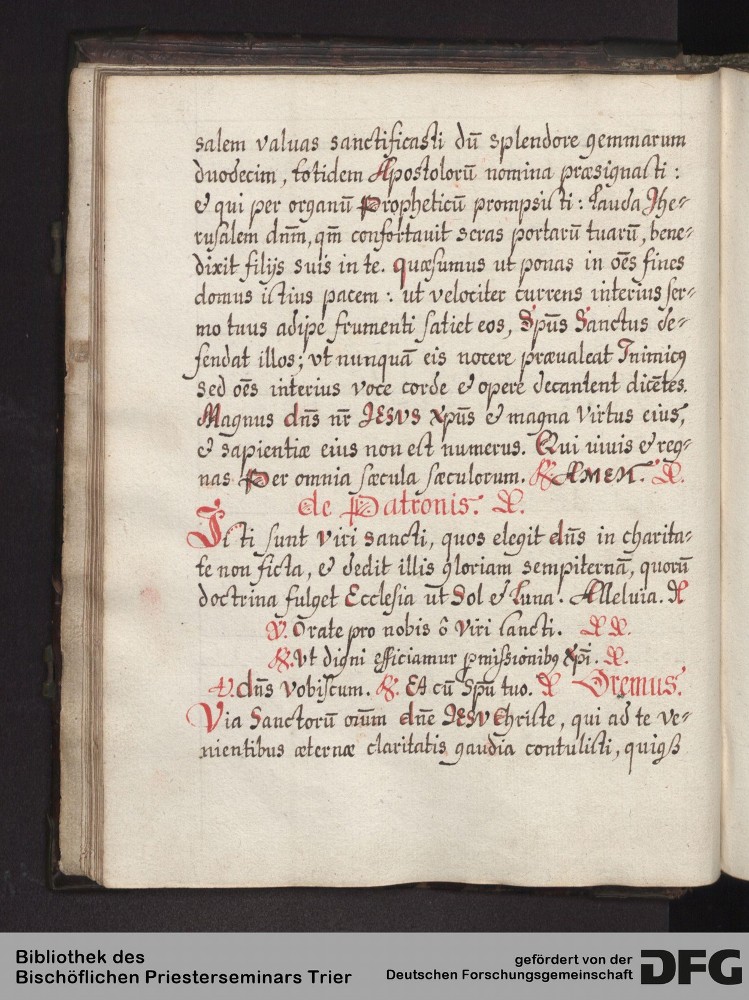 salem valuas sanctificasti dū splendore gemmarum
duodecim, totidem Apostolorū nomina præsignasti:
& qui per organū Propheticū prompsisti: Lauda Jhe-
rusalem dn̄m, qm̄ confortauit seras portarū tuarū, bene-
dixit filijs suis in te. quæsumus ut ponas in oēs fines
domus istius pacem: ut velociter currens interius ser-
mo tuus adipe frumenti satiet eos, Sp̄us Sanctus de-
fendat illos; vt nunquā eis nocere præualeat Inimicꝯ
sed oēs interius voce corde & opere decantent dicētes.
Magnus dn̄s nr̄ JESVS xp̄us & magna Virtus eius,
& sapientiæ eius non est numerus. Qui uiuis & reg-
nas Per omnia sæcula sæculorum. ℟. AMEN.
de Patronis.
Isti sunt viri sancti, quos elegit dn̄s in charita-
te non ficta, & dedit illis gloriam sempiternā, quorū
doctrina fulget Ecclesia ut Sol & Luna. Alleluia.
℣. Orate pro nobis ô Viri sancti.
℟. Vt digni efficiamur ꝓmissionibꝯ xp̄i.
℣. dn̄s vobiscum. ℟. Et cū Sp̄u tuo. Oremus.
Via Sanctorū om̄um dn̄e JESV Christe, qui ad te ve-
nientibus æternæ claritatis gaudia contulisti,
Bibliothek des
Bischöflichen Priesterseminars Trier
gefördert von der
Deutschen Forschungsgemeinschaft DFG